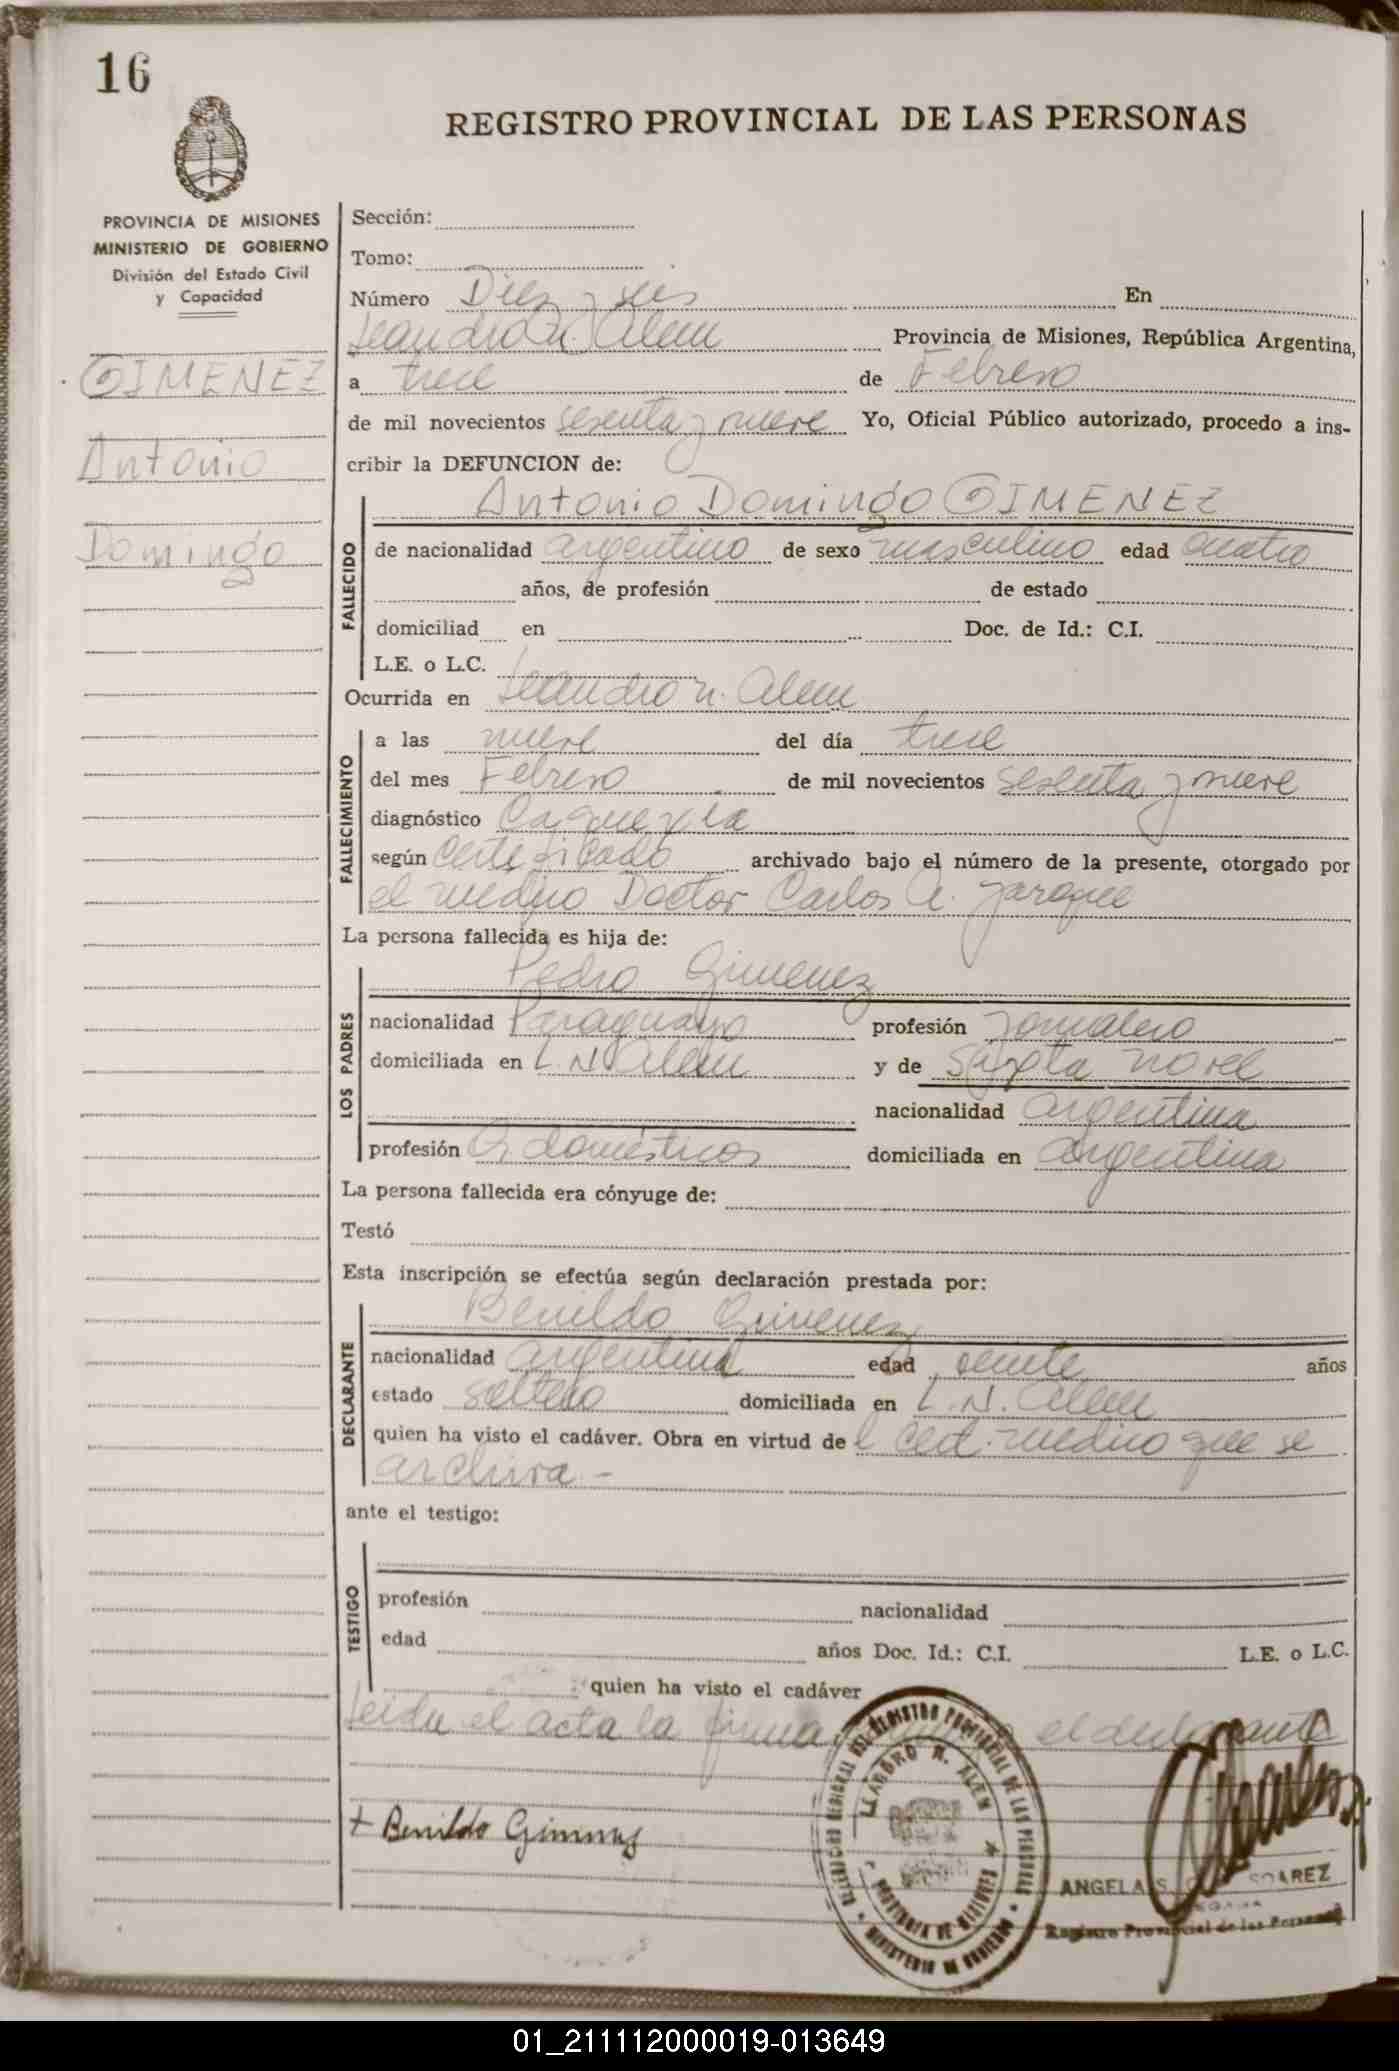 16
REGISTRO PROVINCIAL DE LAS PERSONAS
PROVINCIA DE MISIONES
MINISTERIO DE GOBIERNO
División del Estado Civil
y Capacidad
GIMENEZ
Antonio
Domingo
Sección:
Tomo:
Número Diez y seis En
Leandro N. Alem Provincia de Misiones, República Argentina,
a trece de Febrero
de mil novecientos sesenta y nueve Yo, Oficial Público autorizado, procedo a ins-
cribir la DEFUNCION de:
FALLECIDO
Antonio Domingo GIMENEZ
de nacionalidad argentino de sexo masculino edad cuatro
años, de profesión de estado
domiciliad en Doc. de Id.: C.I.
L.E. o L.C.
Ocurrida en Leandro N. Alem
FALLECIMIENTO
a las nueve del día trece
del mes Febrero de mil novecientos sesenta y nueve
diagnóstico Caquexia
según certificado archivado bajo el número de la presente, otorgado por
el medico Doctor Carlos A. Jarque
La persona fallecida es hija de:
LOS PADRES
Pedro Gimenez
nacionalidad Paraguayo profesión Jornalero
domiciliada en L. N. Alem y de
nacionalidad argentina
profesión Q. domésticos domiciliada en argentina
La persona fallecida era cónyuge de:
Testó
Esta inscripción se efectúa según declaración prestada por:
DECLARANTE
Benildo Gimenez
nacionalidad argentina edad veinte años
estado soltero domiciliada en L. N. Alem
quien ha visto el cadáver. Obra en virtud del cert. medico que se
archiva.-
ante el testigo:
TESTIGO
profesión nacionalidad
edad años Doc. Id.: C.I. L.E. o L.C.
quien ha visto el cadáver
Leida el acta la firma el declarante
+ Benildo Gimenez
REGIONAL DEL REGISTRO PROVINCIAL DE LAS PERSONAS
LEANDRO N. ALEM
PROVINCIA DE MISIONES
MINISTERIO DE GOBIERNO
ANGELA S. SUAREZ
Registro Provincial de las Personas
01_211112000019-013649